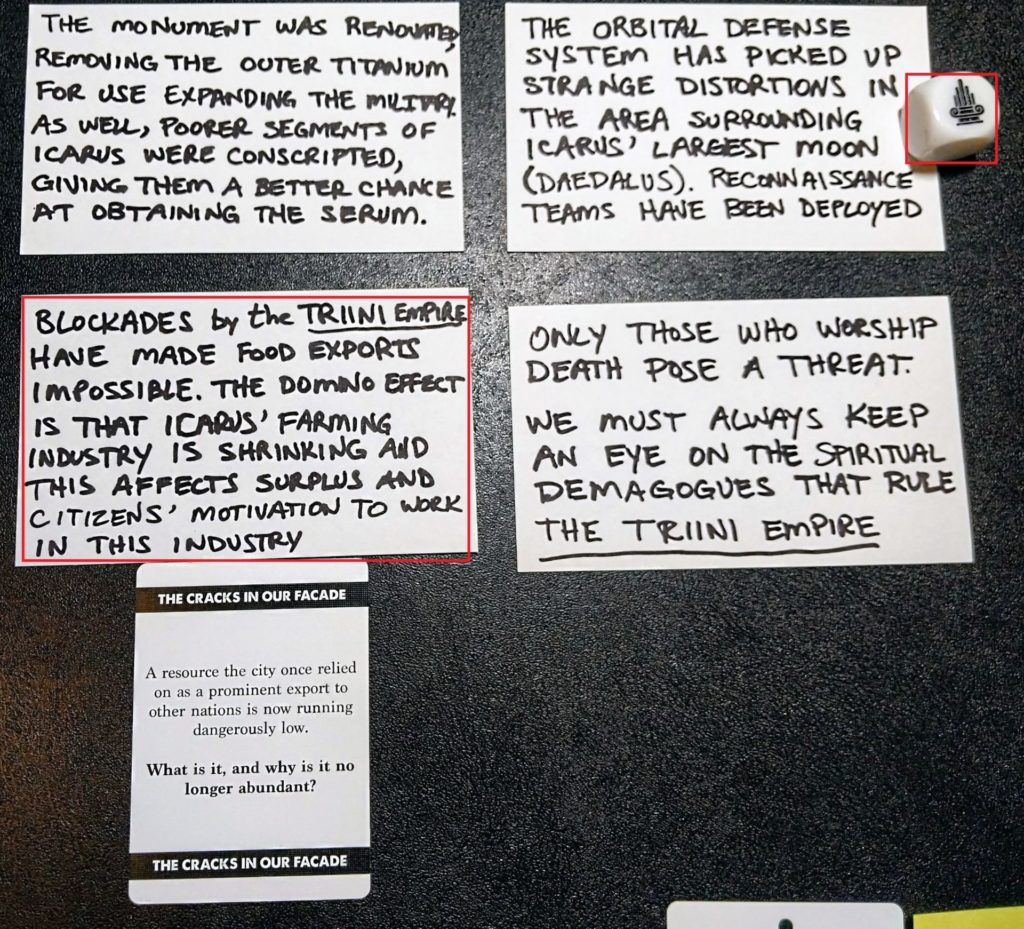 THE MONUMENT WAS RENOVATED,
REMOVING THE OUTER TITANIUM
FOR USE EXPANDING THE MILITARY.
AS WELL, POORER SEGMENTS OF
ICARUS WERE CONSCRIPTED,
GIVING THEM A BETTER CHANCE
AT OBTAINING THE SERUM.
THE ORBITAL DEFENSE
SYSTEM HAS PICKED UP
STRANGE DISTORTIONS IN
THE AREA SURROUNDING
ICARUS' LARGEST MOON
(DAEDALUS). RECONNAISSANCE
TEAMS HAVE BEEN DEPLOYED
BLOCKADES by the TRIINI EMPIRE
HAVE MADE FOOD EXPORTS
IMPOSSIBLE. THE DOMINO EFFECT
IS THAT ICARUS' FARMING
INDUSTRY IS SHRINKING AND
THIS AFFECTS SURPLUS AND
CITIZENS' MOTIVATION TO WORK
IN THIS INDUSTRY
ONLY THOSE WHO WORSHIP
DEATH POSE A THREAT.
WE MUST ALWAYS KEEP
AN EYE ON THE SPIRITUAL
DEMAGOGUES THAT RULE
THE TRIINI EMPIRE
THE CRACKS IN OUR FACADE
A resource the city once relied
on as a prominent export to
other nations is now running
dangerously low.
What is it, and why is it no
longer abundant?
THE CRACKS IN OUR FACADE